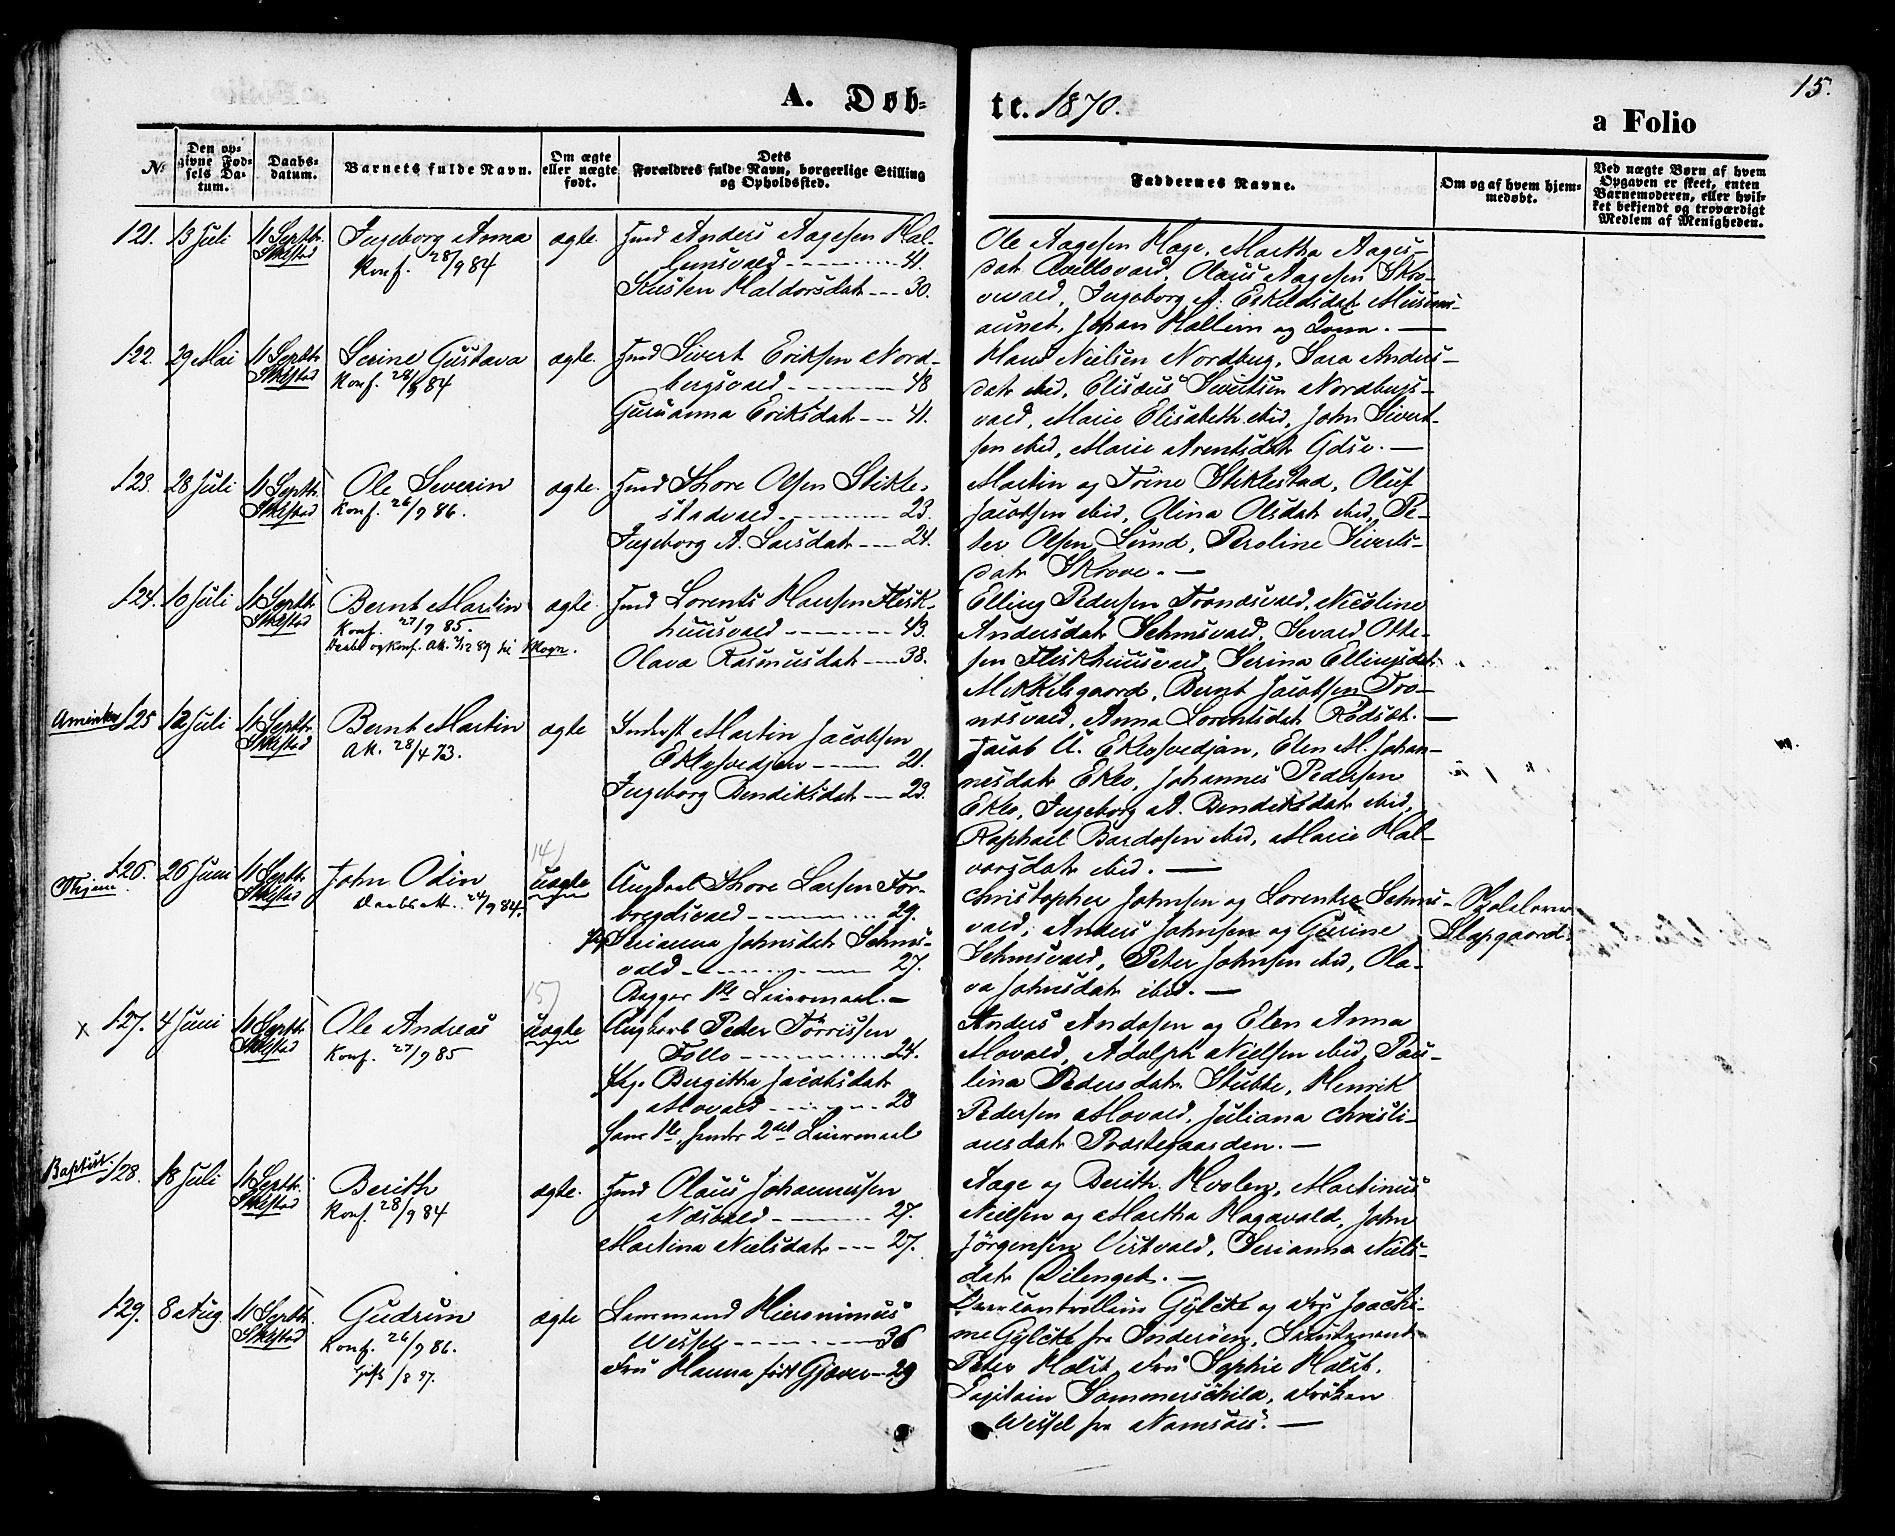 15.
A. Døb-
te. 1870.
a Folio
No
Den op-
givne Fød-
sels Da-
tum.
Daabs-
datum.
Barnets fulde Navn.
Om ægte
eller uægte
født.
Dets
Forældres fulde Navn, borgerlige Stilling
og Opholdssted.
Faddernes Navne.
Om og af hvem hjem-
medøbt.
Ved uægte Børn af hvem
Opgaven er skeet, enten
Barnemoderen, eller hvil-
ket bekjendt og troværdigt
Medlem af Menigheden.
121. 13 Juli 11 Septbr. Ingeborg Anna ægte
Stklstad Konf. 28/9 84
Hmd Anders Aagesen Hal-
lemsvald 41.
Kirsten Haldorsdatr 30.
Ole Aagesen Hage, Martha Aages-
datr, Olaus Aagesen Skov-
vald, Ingeborg A. Eskildsdatr
aunet, Johan Hallem og Kona.
122. 29 Mai 11 Septbr. Serine Gustava ægte
Stklstad Konf. 28/9 84
Hmd Sivert Eriksen Nord-
bergsvald 48
Guruanna Eriksdatr 41.
Hans Nielsen Nordberg, Sara Anders-
datr ibid, Elisæus Sivertsen Nordbergs-
vald, Marie Elisabeth ibid, John Sivert-
sen ibid, Marie Arentsdatr Gdse.
123. 28 Juli 11 Septbr. Ole Severin ægte.
Stklstad Konf. 26/9 86.
Hmd Thore Olsen Stikle-
stadvald 23.
Ingeborg A. Larsdatr 24.
Martin og Trine Stiklestad, Oluf
Jacobsen ibid, Olina Olsdatr ibid, Pe-
ter Olsen Lund, Peroline Siverts-
datr Skovve.
124. 10 Juli 11 Septbr. Bernt Martin ægte
Stklstad Konf. 27/9 85.
Daabs og Konf. At. 2/12 89 til Skogn.
Hmd Lorents Hansen Flesk-
huusvald 43.
Olava Rasmusdatr 38.
Elling Pedersen Tronæsvald, Nicoline
Andersdatr Selmsvald, Sevald Otte-
sen Fleskhuusvald, Serina Ellingsdatr
Mikkelsgaard, Bernt Jacobsen Tro-
næsvald, Anna Lorentsdatr Rødset.
Amerika 125 12 Juli 11 Septbr. Bernt Martin ægte
Stklstad At. 28/4 73.
Inderst Martin Jacobsen
Eklosvedjan 21.
Ingeborg Bendiksdatr 23.
Jacob U. Eklosvedjan, Elen M. Johan-
nesdatr Eklo, Johannes Pedersen
Eklo, Ingeborg A. Bendiksdatr ibid,
Raphael Bardosen ibid, Marie Hal-
vorsdatr ibid.
14)
Thjem 126. 26 Juni 11 Septbr. John Odin uægte
Stklstad Daabsatt. 24/9 84.
Ungkarl Thore Larsen For-
bregdsvald 29.
Pig. Serianna Johnsdatr Selms-
vald 27.
Begges 1ste Leiermaal.
Christopher Johnsen og Lorentse Selms-
vald, Anders Johnsen og Gurine
Selmsvald, Peter Johnsen ibid, Ola-
va Johnsdatr ibid.
Skolelærer
Slapgaard.
15)
x 127. 4 Juni 11 Septbr. Ole Andreas uægte
Stklstad Konf. 27/9 85
Ungkarl Peter Tørrissen
Follo 24.
Pig. Bergitta Jacobsdatr
Movald 28
Hans 1ste, hendes 2det Leiermaal
Anders Andosen og Elen Anna
Movald, Adolph Nielsen ibid, Pau-
lina Pedersdatr Stubbe, Henrik
Pedersen Movald, Juliana Christi-
ansdatr Præstegaarden.
Baptist. 128. 18 Juli 11 Septbr. Berith ægte.
Stklstad Konf. 28/9 84
Hmd Olaus Johannessen
Næsvald 27.
Martina Nielsdatr 27.
Aage og Berith Hvolen, Martinus
Nielsen og Martha Hagavald, John
Jørgensen Vistvald, Serianna Niels-
datr.
129. 8 Aug. 11 Septbr. Gudrun ægte
Stklstad Konf. 26/9 86.
Gift 1/8 97.
Lensmand Hieronimus
Wessel 36
Fru Hanna født Gjæver 29
Gylche og Fru Joachi-
me Gylche fra Inderøen, Lieutenant
Peter Holst, Fru Sophie Holst,
Capitain Sommerschild, Frøken
Wessel fra Namsos.